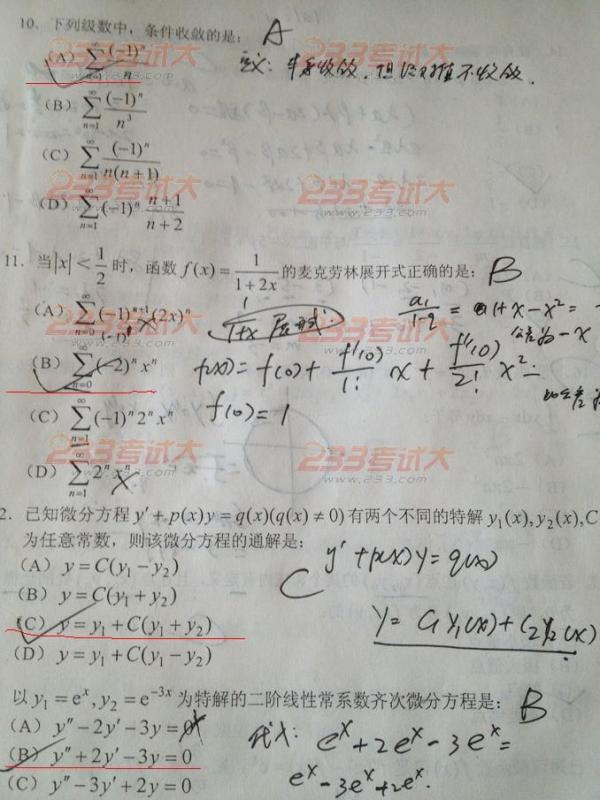 10. 下列级数中，条件收敛的是： A
(A) $\sum_{n=1}^{\infty}\frac{(-1)^n}{n}$
定义：本身收敛，但绝对值不收敛.
(B) $\sum_{n=1}^{\infty}\frac{(-1)^n}{n^3}$
(C) $\sum_{n=1}^{\infty}\frac{(-1)^n}{n(n+1)}$
(D) $\sum_{n=1}^{\infty}(-1)^n\frac{n+1}{n+2}$
233考试大
www.233.com
11. 当|x|<$\frac{1}{2}$时，函数 $f(x)=\frac{1}{1+2x}$ 的麦克劳林展开式正确的是： B
(A) $\sum_{n=0}^{\infty}(-1)^{n+1}(2x)^n$
$\frac{1}{1+x}$ 展形式:
$\frac{a_1}{1-q}$ = 1+x-x²=
公差为-x
(B) $\sum_{n=0}^{\infty}(-2)^n x^n$
$f(x)=f(0)+\frac{f'(0)}{1!}x+\frac{f''(0)}{2!}x^2$
(C) $\sum_{n=1}^{\infty}(-1)^n 2^n x^n$
f(0)=1
(D) $\sum_{n=1}^{\infty}2^n x^n$
2. 已知微分方程 y'+p(x)y=q(x)(q(x)≠0)有两个不同的特解 y₁(x),y₂(x),C
为任意常数，则该微分方程的通解是：
(A) y=C(y₁-y₂)
C y'+p(x)y=q(x)
(B) y=C(y₁+y₂)
(C) y=y₁+C(y₁+y₂)
y=C₁y₁(x)+C₂y₂(x)
(D) y=y₁+C(y₁-y₂)
以 y₁=eˣ,y₂=e⁻³ˣ 为特解的二阶线性常系数齐次微分方程是： B
(A) y''-2y'-3y=0
代入: eˣ+2eˣ-3eˣ=
(B) y''+2y'-3y=0
eˣ-3eˣ+2eˣ.
(C) y''-3y'+2y=0